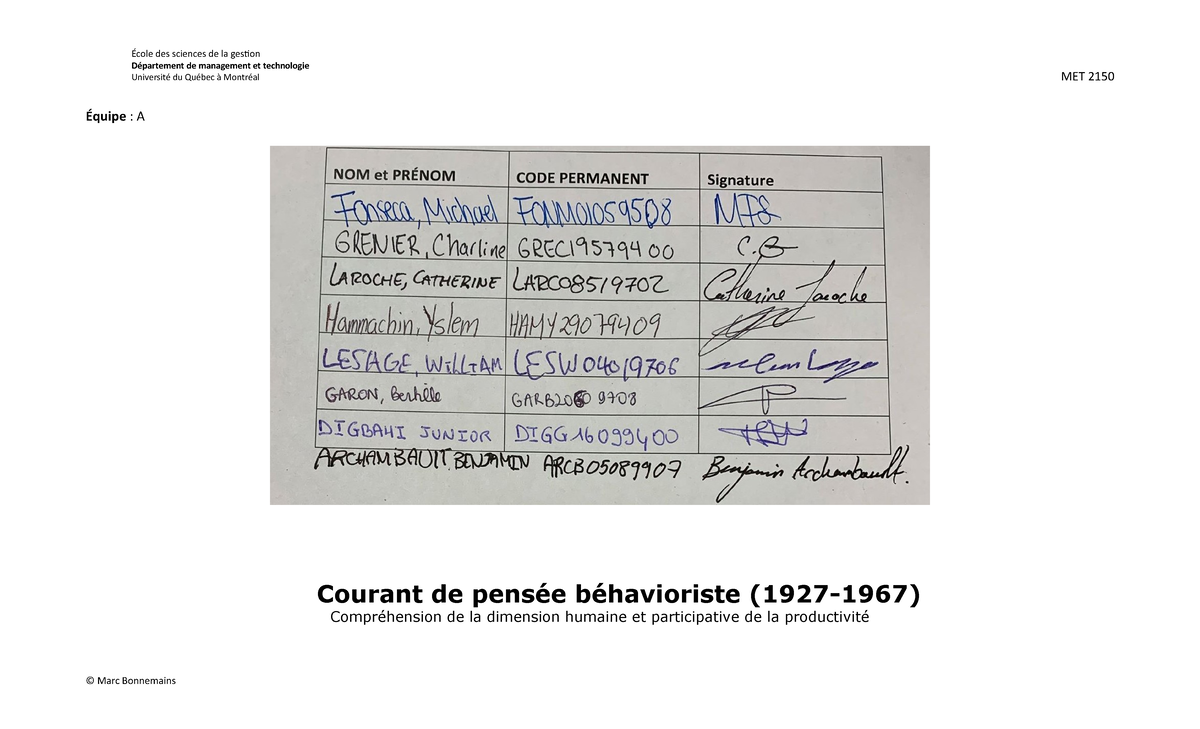 École des sciences de la gestion
Département de management et technologie
Université du Québec à Montréal
MET 2150
Équipe : A
NOM et PRÉNOM CODE PERMANENT Signature
Fonseca, Michael FONM01059508 MFS
GRENIER, Charline GREC19579400 C.G
LAROCHE, CATHERINE LARC08519702 Catherine Laroche
Hammachin, Yslem HAMY29079409
LESAGE, WILLIAM LESW04019706
GARON, Bertille
DIGBAHI JUNIOR DIGG16099400
ARCHAMBAULT BENJAMIN ARCB05089907 Benjamin Archambault.
Courant de pensée béhavioriste (1927-1967)
Compréhension de la dimension humaine et participative de la productivité
© Marc Bonnemains